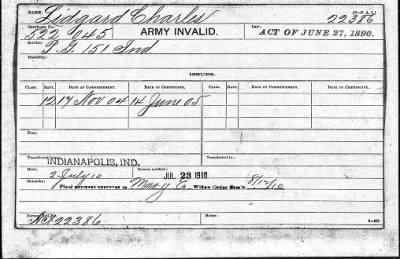 NAME: Lidgard Charles 22386
Certificate No. 522 045 ARMY INVALID. Law: ACT OF JUNE 27, 1890.
Service: P. G. 151 Ind
Disability:
ISSUES.
CLASS. RATE. DATE OF COMMENCEMENT. DATE OF CERTIFICATE. CLASS. RATE. DATE OF COMMENCEMENT. DATE OF CERTIFICATE.
12 17 Nov 04 14 June 05
From
Transferred INDIANAPOLIS, IND.
Died: 2 July 10 Bureau notified: JUL 23 1910
Remarks: Final payment approved to Mary E. Widow Order Dem'r. 8/12/10
Former Roll No. Act 22386 Home: